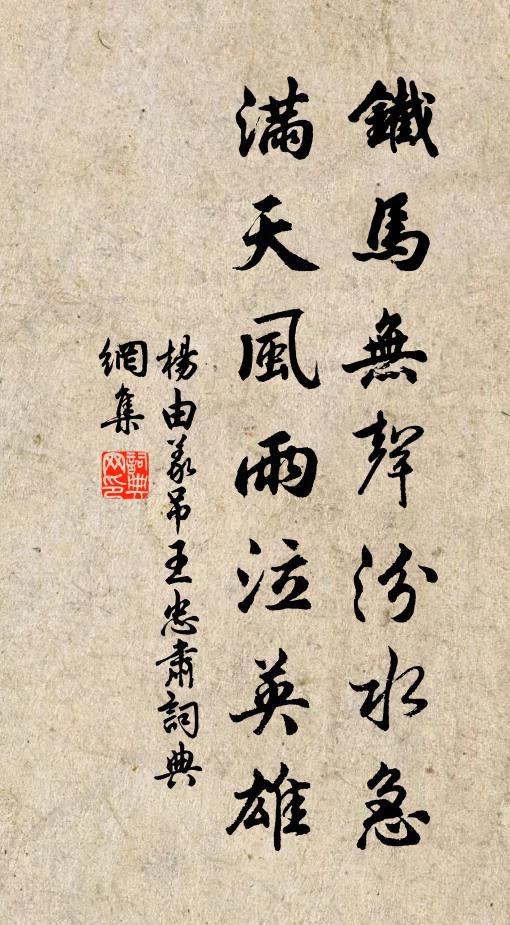 鐵馬無聲汾水急
滿天風雨泣英雄
楊由義吊王忠肅詞典
網集
詞典
网印